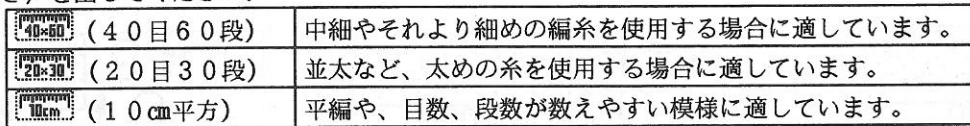 40×60 (40目60段) 中細やそれより細めの編糸を使用する場合に適しています。
20×30 (20目30段) 並太など、太めの糸を使用する場合に適しています。
10cm (10㎝平方) 平編や、目数、段数が数えやすい模様に適しています。